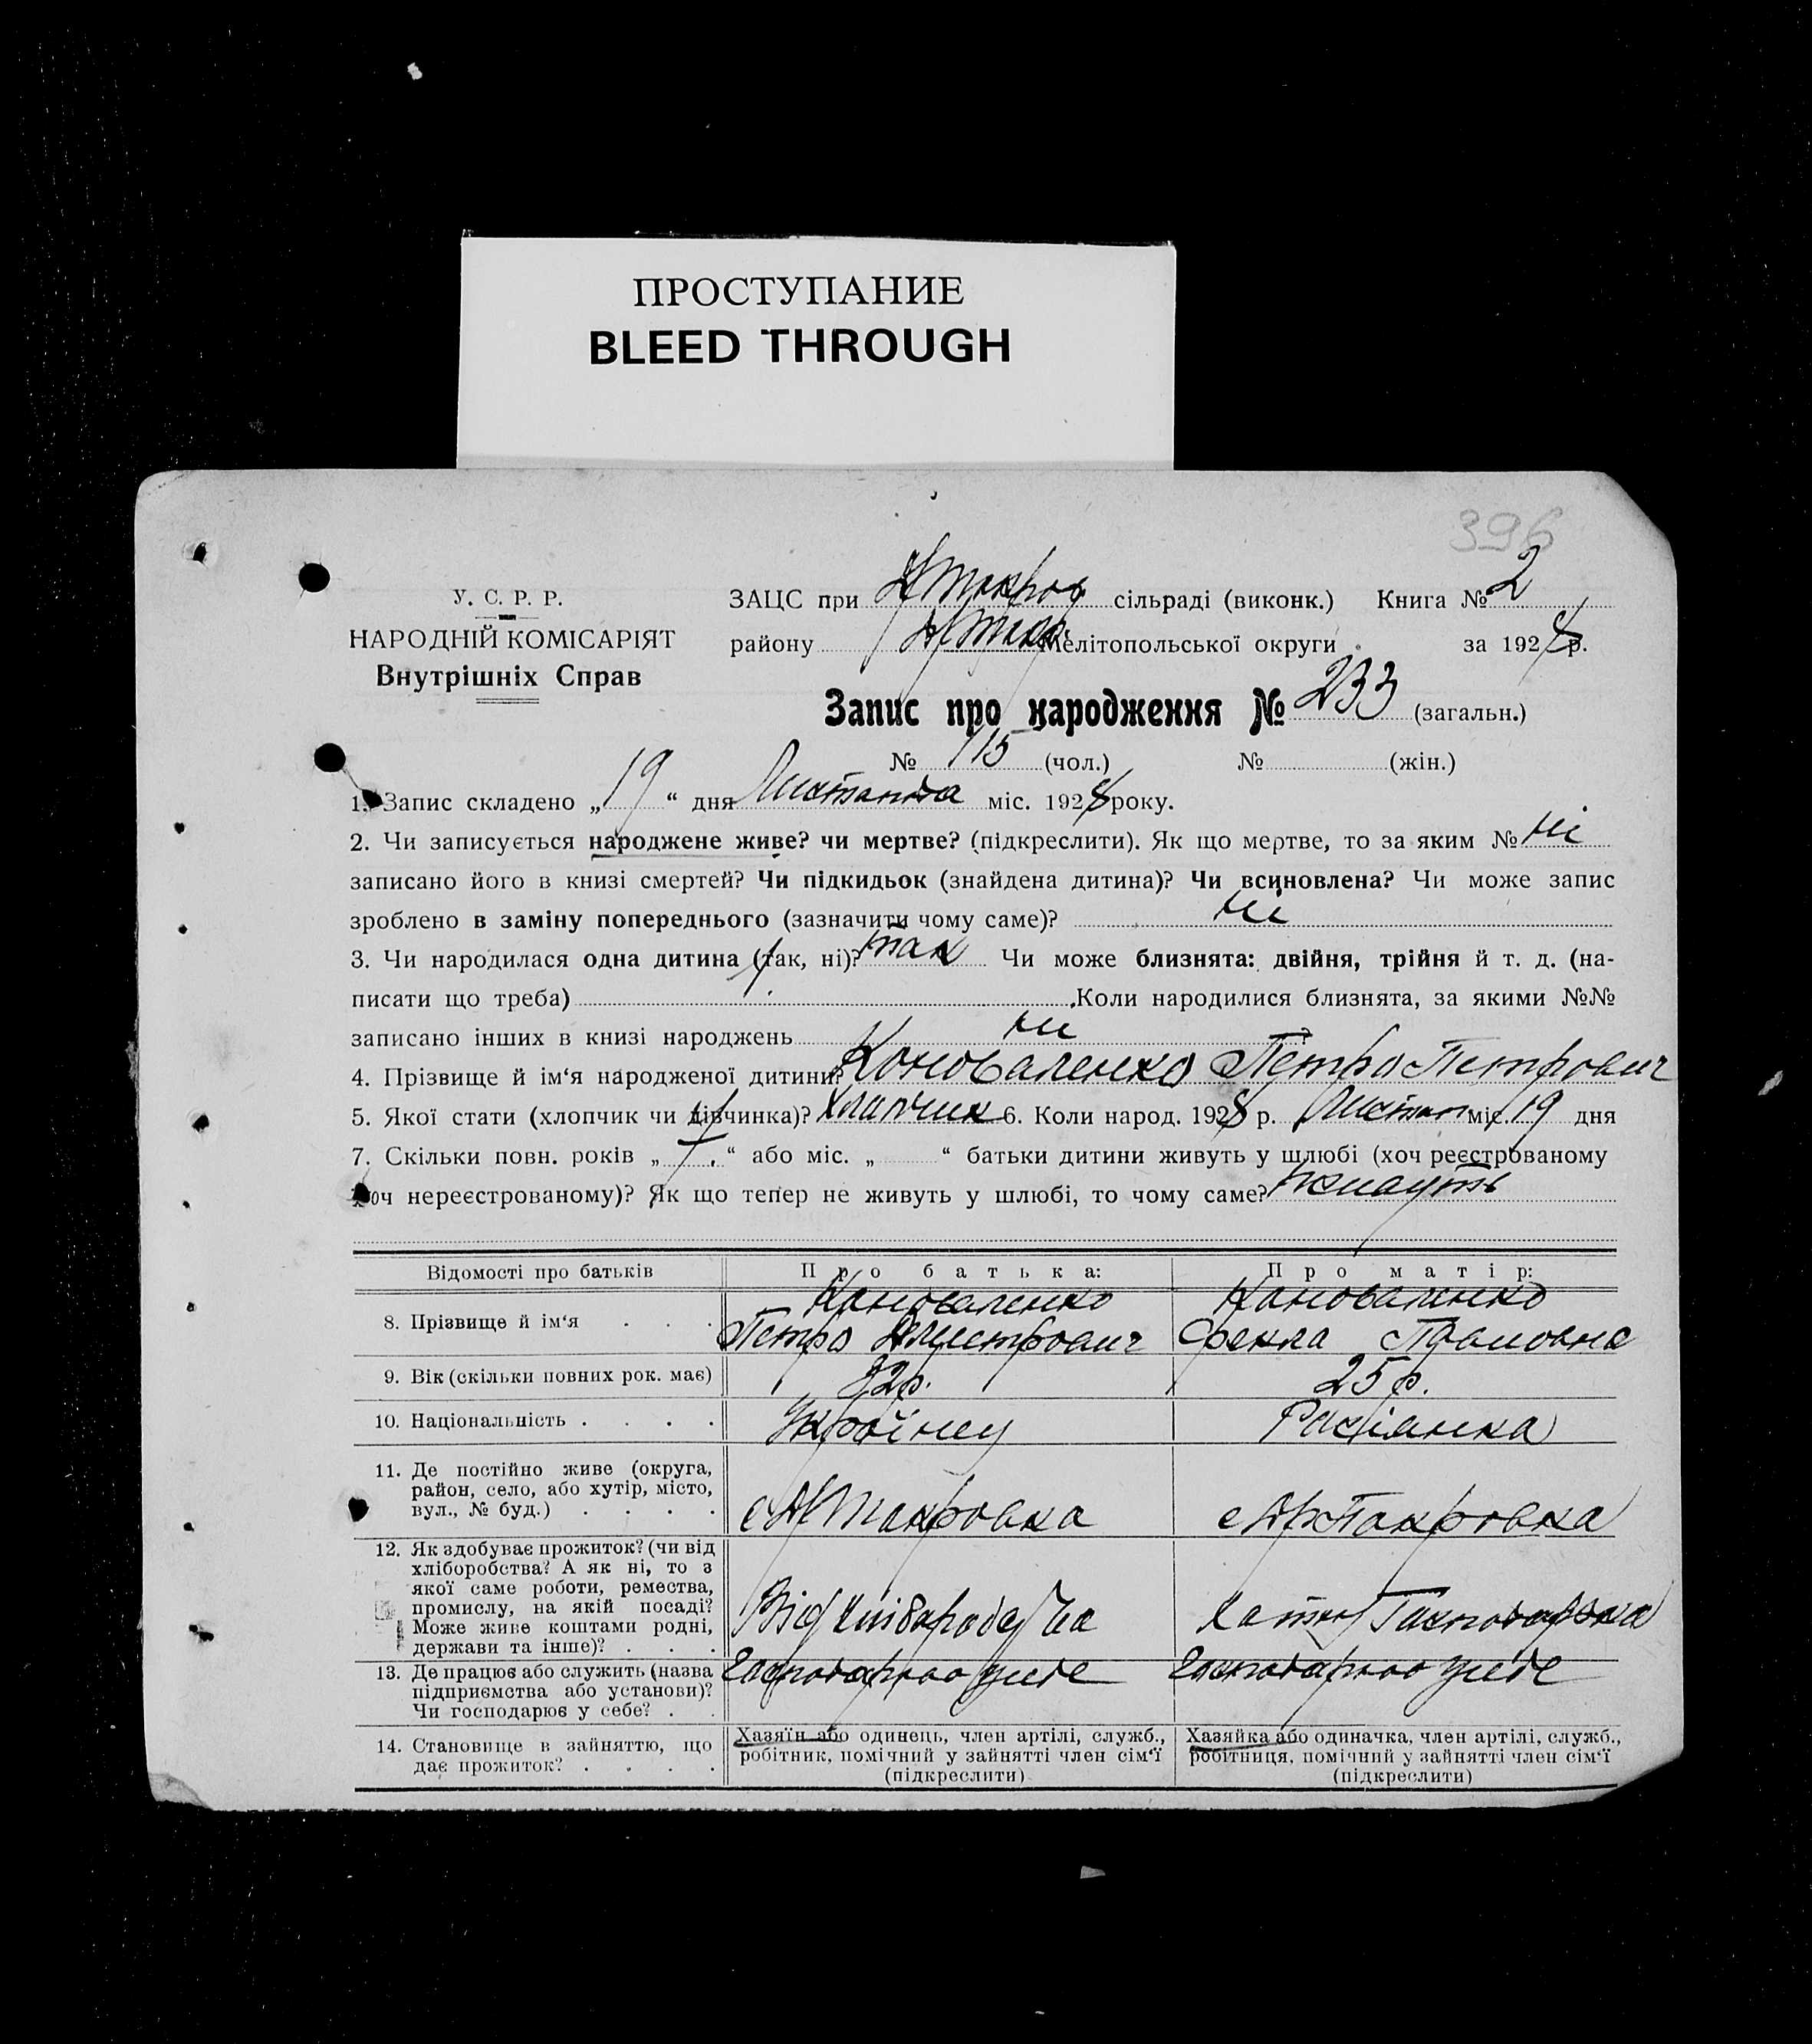 ПРОСТУПАНИЕ
BLEED THROUGH
396
У. С. Р. Р.
НАРОДНІЙ КОМІСАРІЯТ
Внутрішніх Справ
ЗАЦС при сільраді (виконк.) Книга № 2
району Мелітопольської округи за 1928 р.
Запис про народження № 233 (загальн.)
№ 115 (чол.) № (жін.)
1. Запис складено „ 19 “ дня Листопада міс. 1928 року.
2. Чи записується народжене живе? чи мертве? (підкреслити). Як що мертве, то за яким № ні
записано його в книзі смертей? Чи підкидьок (знайдена дитина)? Чи всиновлена? Чи може запис
зроблено в заміну попереднього (зазначити чому саме)? ні
3. Чи народилася одна дитина (так, ні)? так Чи може близнята: двійня, трійня й т. д. (на-
писати що треба) Коли народилися близнята, за якими №№
записано інших в книзі народжень ні
4. Прізвище й ім‘я народженої дитини? Коноваленко Петро Петрович
5. Якої стати (хлопчик чи дівчинка)? Хлапчик 6. Коли народ. 1928 р. Листоп міс. 19 дня
7. Скільки повн. років „ 7. “ або міс. „ “ батьки дитини живуть у шлюбі (хоч реєстрованому
хоч нереєстрованому)? Як що тепер не живуть у шлюбі, то чому саме? живуть
Відомості про батьків Про батька: Про матір:
8. Прізвище й ім‘я . . . Коноваленко Петро Дмитрович Коноваленко Фекла
9. Вік (скільки повних рок. має) 32р. 25 р.
10. Національність . . . . Українец Расіянка
11. Де постійно живе (округа,
район, село, або хутір, місто,
вул., № буд.) . . . .
12. Як здобуває прожиток? (чи від
хліборобства? А як ні, то з
якої саме роботи, ремества,
промислу, на якій посаді?
Може живе коштами родні,
держави та інше)? . . .
Від хліборобства Хатня Гасподарка
13. Де працює або служить (назва
підприємства або установи)?
Чи господарює у себе? . .
гасподарює у себе гасподарює у себе
14. Становище в зайняттю, що
дає прожиток? . . . .
Хазяїн або одинець, член артілі, служб.,
робітник, помічний у зайнятті член сім‘ї
(підкреслити)
Хазяйка або одиначка, член артілі, служб.,
робітниця, помічний у зайнятті член сім‘ї
(підкреслити)